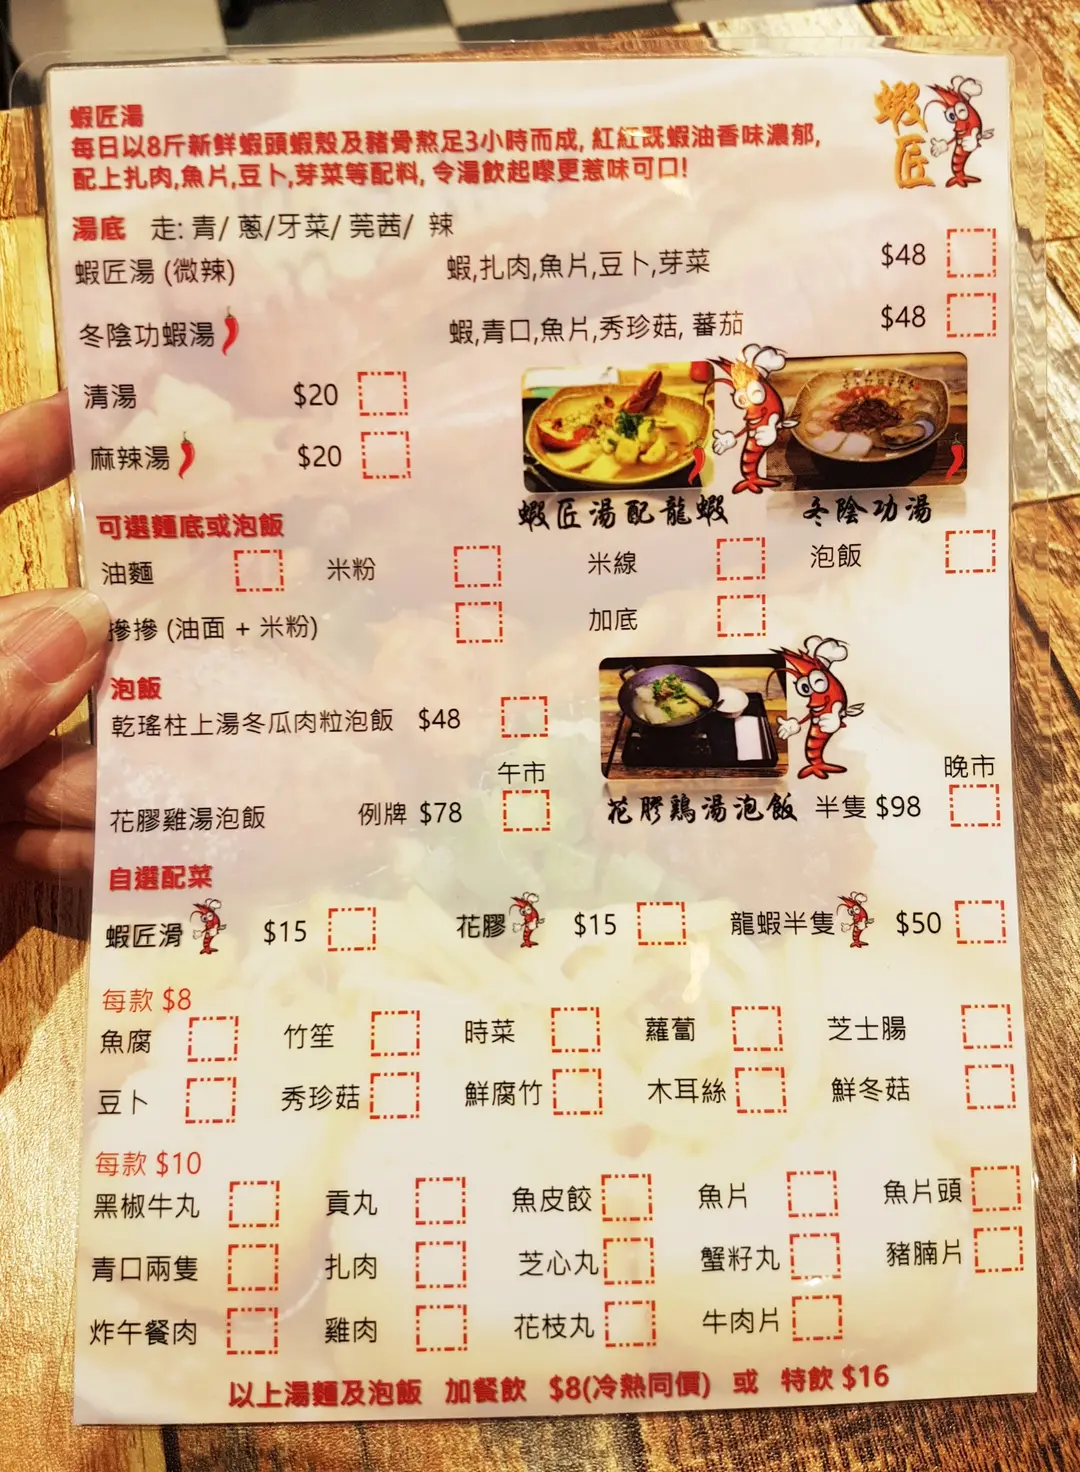 蝦匠湯
每日以8斤新鮮蝦頭蝦殼及豬骨熬足3小時而成, 紅紅既蝦油香味濃郁,
配上扎肉,魚片,豆卜,芽菜等配料, 令湯飲起嚟更惹味可口!
蝦匠
湯底 走: 青/ 蔥/牙菜/ 莞茜/ 辣
蝦匠湯 (微辣) 蝦,扎肉,魚片,豆卜,芽菜 $48
冬陰功蝦湯 蝦,青口,魚片,秀珍菇, 蕃茄 $48
清湯 $20
麻辣湯 $20
蝦匠湯配龍蝦 冬陰功湯
可選麵底或泡飯
油麵 米粉 米線 泡飯
摻摻 (油面 + 米粉) 加底
泡飯
乾瑤柱上湯冬瓜肉粒泡飯 $48
午市 晚市
花膠雞湯泡飯 例牌 $78 花膠鷄湯泡飯 半隻 $98
自選配菜
蝦匠滑 $15 花膠 $15 龍蝦半隻 $50
每款 $8
魚腐 竹笙 時菜 蘿蔔 芝士腸
豆卜 秀珍菇 鮮腐竹 木耳絲 鮮冬菇
每款 $10
黑椒牛丸 貢丸 魚皮餃 魚片 魚片頭
青口兩隻 扎肉 芝心丸 蟹籽丸 豬腩片
炸午餐肉 雞肉 花枝丸 牛肉片
以上湯麵及泡飯 加餐飲 $8(冷熱同價) 或 特飲 $16